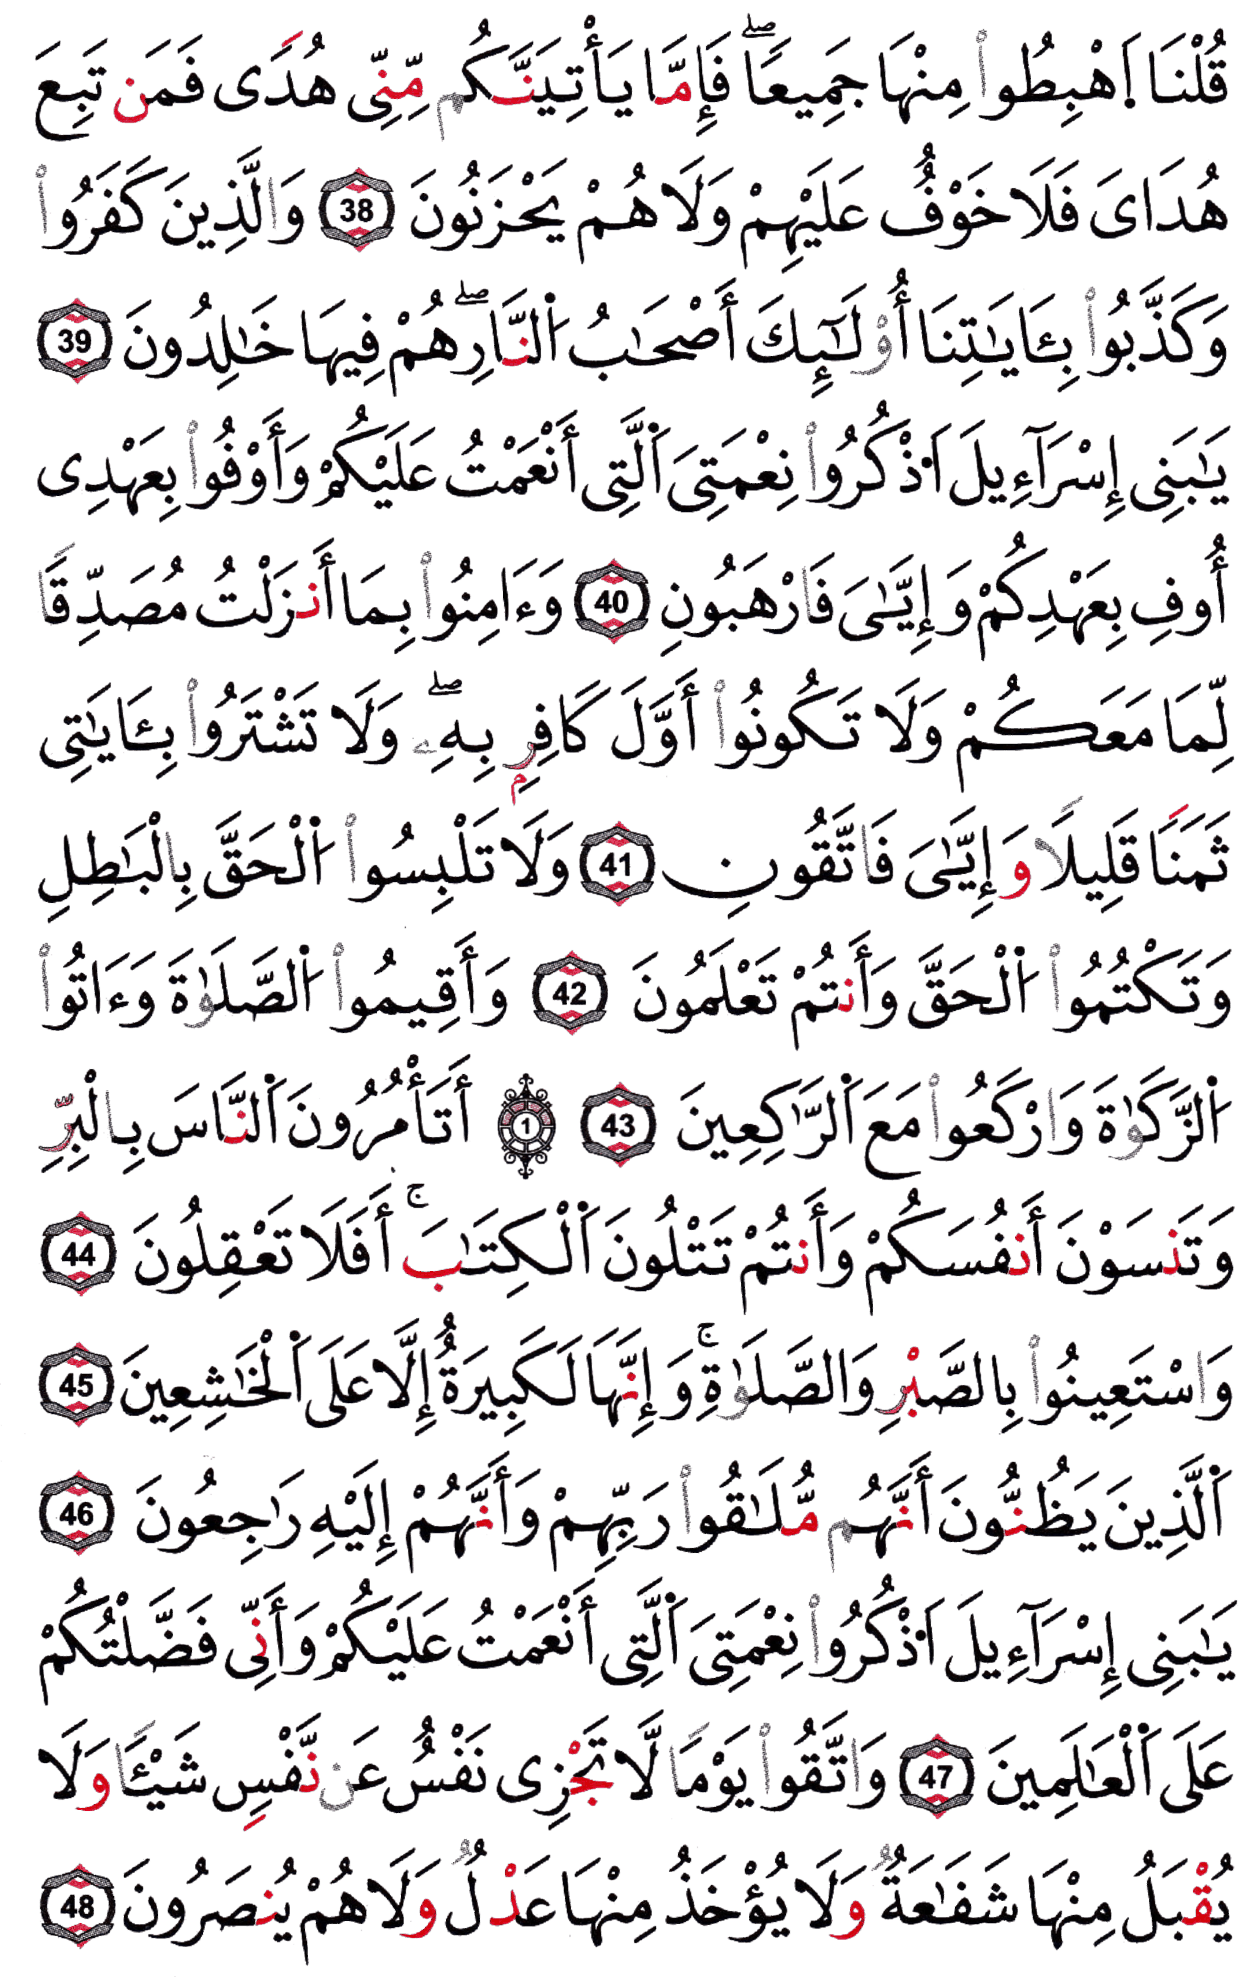 قُلْنَا اَ۪هْبِطُواْ مِنْهَا جَمِيعًاۖ فَإِمَّا يَأْتِيَنَّكُم مِّنِّى هُدًى فَمَن تَبِعَ
هُدَاىَ فَلَا خَوْفٌ عَلَيْهِمْ وَلَا هُمْ يَحْزَنُونَ 38 وَالَّذِينَ كَفَرُواْ
وَكَذَّبُواْ بِـَٔايَـٰتِنَا أُوْلَـٰٓئِكَ أَصْحَـٰبُ اَ۬لنَّارِۖ هُمْ فِيهَا خَـٰلِدُونَ 39
يَـٰبَنِى إِسْرَآءِيلَ اَ۟ذْكُرُواْ نِعْمَتِىَ اَ۬لَّتِى أَنْعَمْتُ عَلَيْكُمْ وَأَوْفُواْ بِعَهْدِى
أُوفِ بِعَهْدِكُمْ وَإِيَّـٰىَ فَارْهَبُونِ 40 وَءَامِنُواْ بِمَا أَنزَلْتُ مُصَدِّقًا
لِّمَا مَعَكُمْ وَلَا تَكُونُواْ أَوَّلَ كَافِرِۭ بِهِۦۖ وَلَا تَشْتَرُواْ بِـَٔايَـٰتِى
ثَمَنًا قَلِيلًا وَإِيَّـٰىَ فَاتَّقُونِ 41 وَلَا تَلْبِسُواْ اُ۬لْحَقَّ بِالْبَـٰطِلِ
وَتَكْتُمُواْ اُ۬لْحَقَّ وَأَنتُمْ تَعْلَمُونَ 42 وَأَقِيمُواْ اُ۬لصَّلَوٰةَ وَءَاتُواْ
اُ۬لزَّكَوٰةَ وَارْكَعُواْ مَعَ اَ۬لرَّٰكِعِينَ 43 1 أَتَأْمُرُونَ اَ۬لنَّاسَ بِالْبِرِّ
وَتَنسَوْنَ أَنفُسَكُمْ وَأَنتُمْ تَتْلُونَ اَ۬لْكِتَـٰبَۚ أَفَلَا تَعْقِلُونَ 44
وَاسْتَعِينُواْ بِالصَّبْرِ وَالصَّلَوٰةِۚ وَإِنَّهَا لَكَبِيرَةٌ إِلَّا عَلَى اَ۬لْخَـٰشِعِينَ 45
اَ۬لَّذِينَ يَظُنُّونَ أَنَّهُم مُّلَـٰقُواْ رَبِّهِمْ وَأَنَّهُمْ إِلَيْهِ رَٰجِعُونَ 46
يَـٰبَنِى إِسْرَآءِيلَ اَ۟ذْكُرُواْ نِعْمَتِىَ اَ۬لَّتِى أَنْعَمْتُ عَلَيْكُمْ وَأَنِّى فَضَّلْتُكُمْ
عَلَى اَ۬لْعَـٰلَمِينَ 47 وَاتَّقُواْ يَوْمًا لَّا تَجْزِى نَفْسٌ عَن نَّفْسٍ شَيْـًٔا وَلَا
يُقْبَلُ مِنْهَا شَفَـٰعَةٌ وَلَا يُؤْخَذُ مِنْهَا عَدْلٌ وَلَا هُمْ يُنصَرُونَ 48